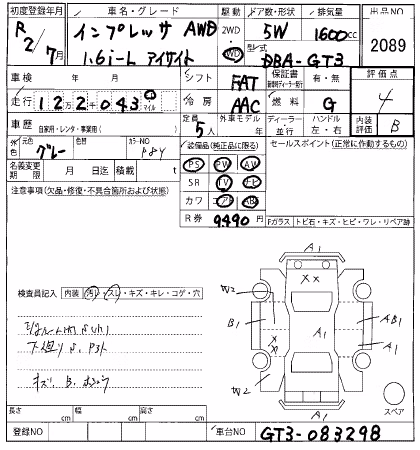 初度登録年月 車名・グレード 駆動 ドア数・形状 排気量 出品NO
R2/7月 インプレッサ AWD 2WD 4WD 5W 1600cc 2089
1.6i-L アイサイト 型式 DBA-GT3
車検 年 月 シフト FAT 保証書 有・無 評価点
走行 122043 マイル 冷房 AAC 燃料 G 4
車歴 自家用・レンタ・事業用( ) 定員 5人 外車モデル 年 ディーラー・並行 ハンドル 左・右 内装評価 B
外色 元色 グレー 色替 カラーNO P84 装備品(純正品に限る) セールスポイント(正常に作動するもの)
名義変更期限 月 日迄 積載 t PS PW AW
注意事項(欠品・修復・不具合箇所および状態) SR TV ナビ
カワ エアB ABS
R券 9490 Fガラス トビ石・キズ・ヒビ・ワレ・リペア跡
検査員記入 内装 汚れ・スレ・キズ・キレ・コゲ・穴
A1
XX
W2
B1 A1 AB1
A1
XX
W2
A1
スペア
下廻り
キズ. B.
長さ cm 幅 cm 高さ cm
登録NO 車台NO GT3-083298